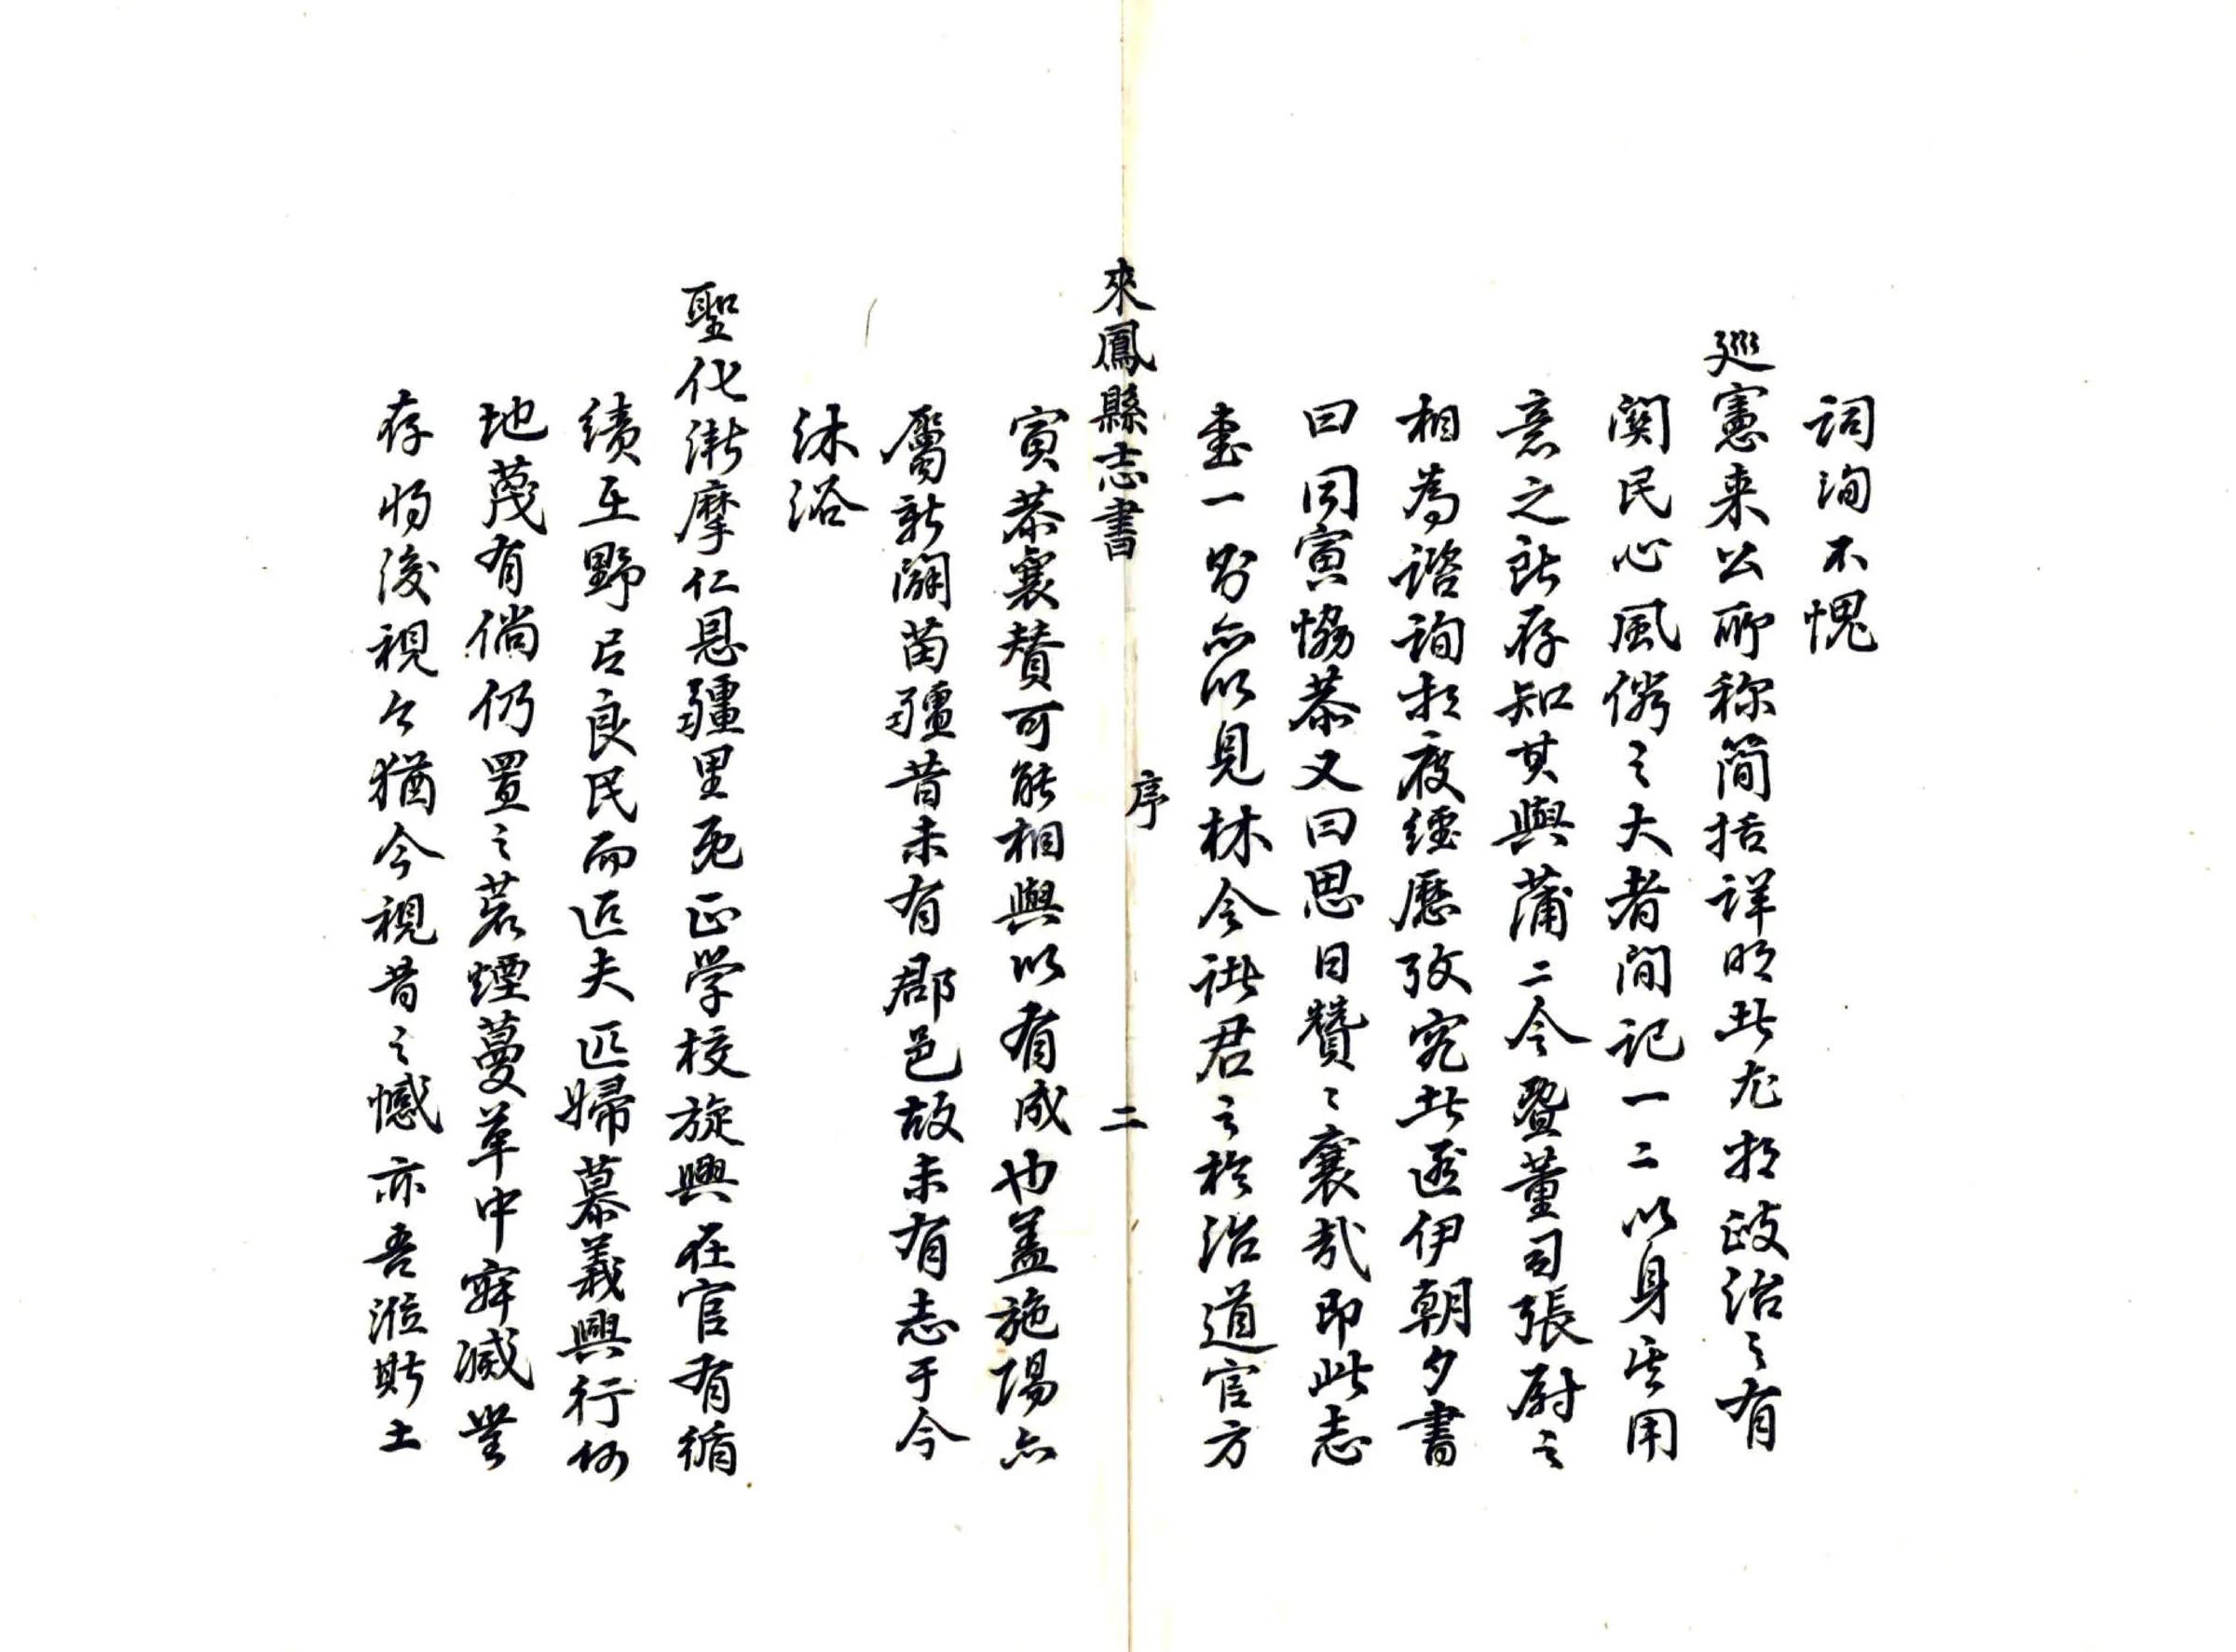 詞洵不愧
廵憲来公所称簡括詳明至尤於政治之有
関民心風俗之大者間記一二以身其用
意之所存知其與蒲二令暨董司張尉之
相為諮詢於疲經歷攷究些逐伊朝夕書
曰同寅恊恭又曰思日贊〻襄哉即此志
書一則亦以見林令諸君之於治道官方
來鳳縣志書 序 二
寅恭襄賛可能相與以有成也盖施陽亦
屬新闢苗疆昔未有郡邑故未有志于今
沐浴
聖化漸摩仁恩疆里既正学校旋興在官有循
績在野已良民而近夫匹婦慕義興行何
地蔑有倘仍置之荒煙蔓草中寐滅無
存将後視今猶今視昔之憾亦吾涖斯土